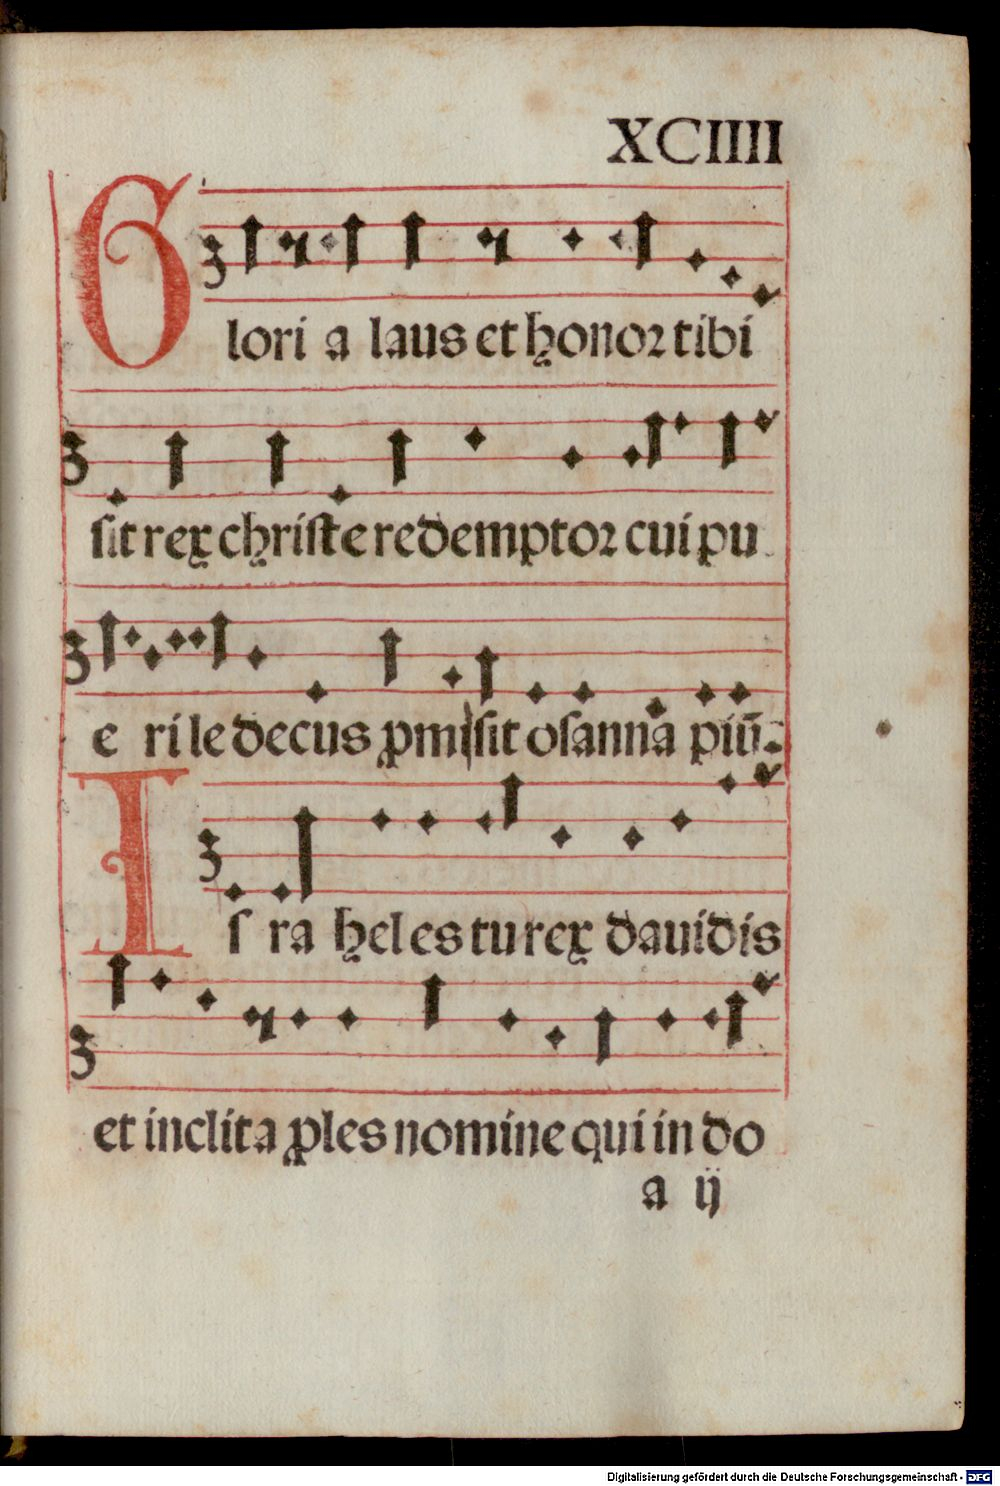 XCIIII
Glori a laus et honor tibi
sit rex christe redemptor cui pu
e ri le decus ꝓm sit osanna piū.
Is ra hel es tu rex dauidis
et inclita ꝓles nomine qui in do
a ij
Digitalisierung gefördert durch die Deutsche Forschungsgemeinschaft - DFG